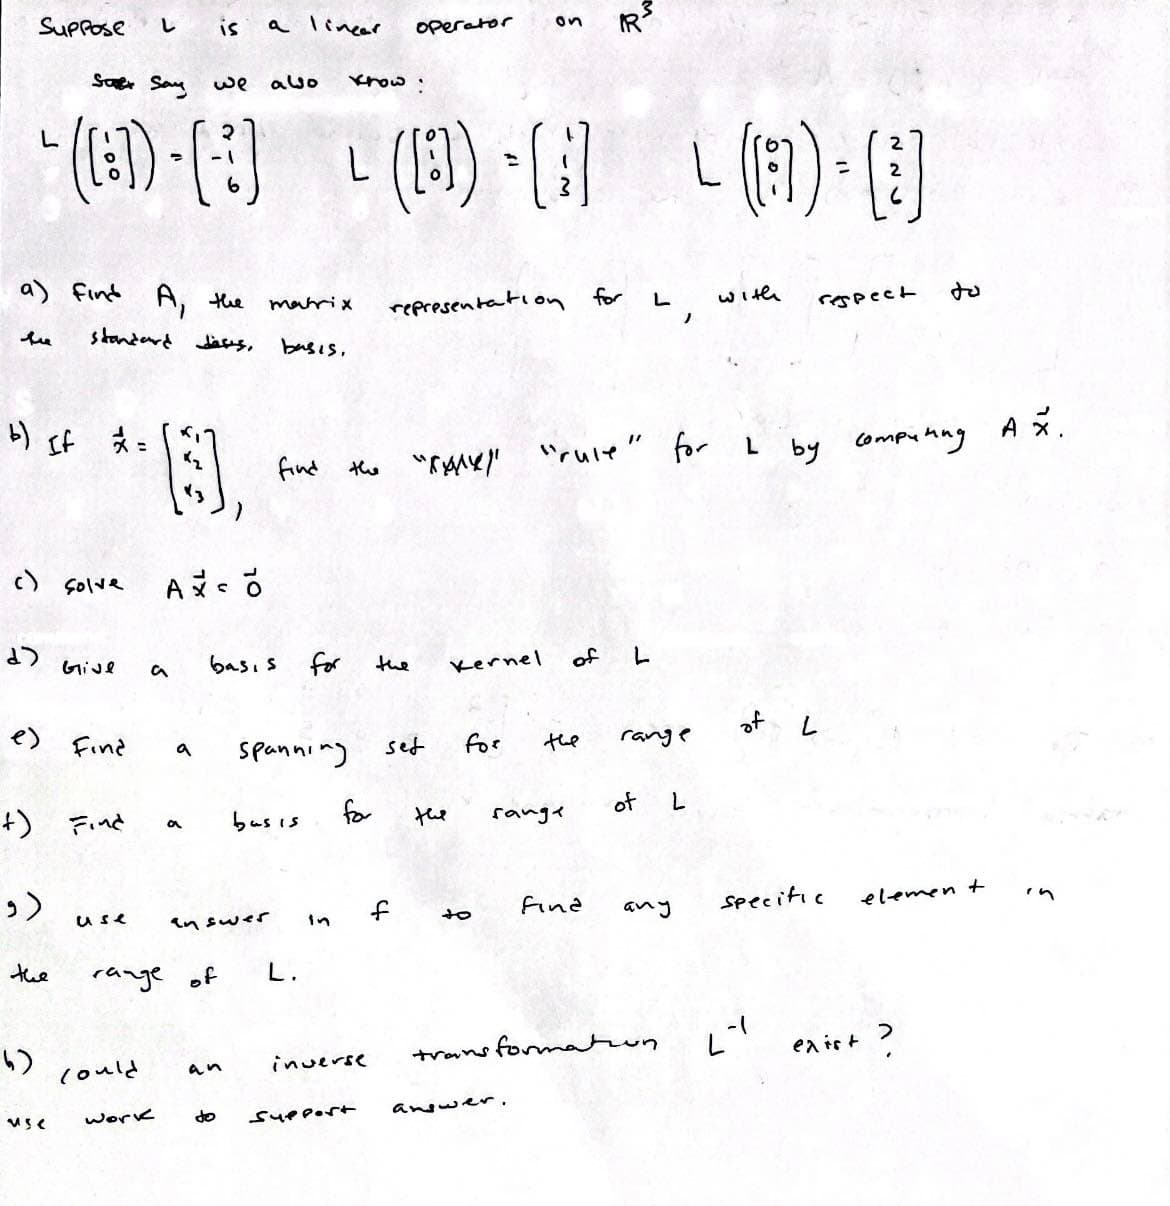 Suppose L is a linear operator on ℝ³
Say we also know:
L([1 0 0]) = [2 -1 6] L([0 1 0]) = [1 1 3] L([0 0 1]) = [2 2 6]
a) Find A, the matrix representation for L, with respect to
the standard basis.
b) If x⃗ = [x₁ x₂ x₃], find the "rule" for L by computing A x⃗.
c) Solve A x⃗ = 0⃗
d) Give a basis for the kernel of L
e) Find a spanning set for the range of L
f) Find a basis for the range of L
g) use answer in f to find any specific element in
the range of L.
h) could an inverse transformation L⁻¹ exist?
use work to support answer.